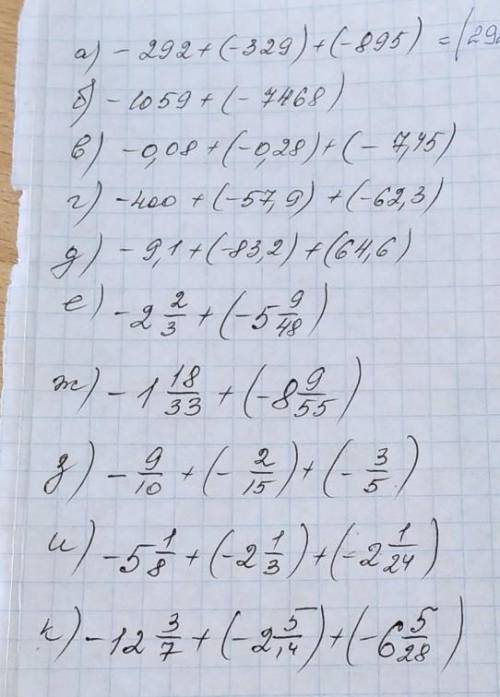 а) - 292 + (-329) + (-895) = (29
б) -1059 + (- 7468)
в) -0,08 + (-0,28) + (- 7,45)
г) -400 + (-57,9) + (-62,3)
д) - 9,1 + (-83,2) + (64,6)
е) -2 2/3 + (-5 9/48)
ж) -1 18/33 + (-8 9/55)
з) - 9/10 + (- 2/15) + (- 3/5)
и) -5 1/8 + (-2 1/3) + (-2 1/24)
к) -12 3/7 + (-2 5/14) + (-6 5/28)